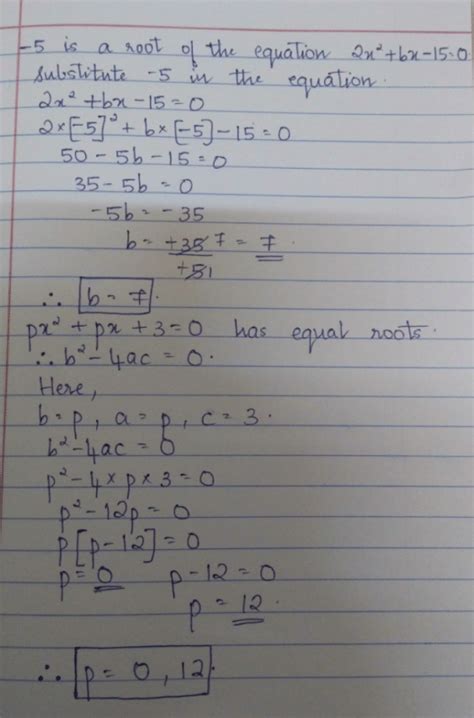 -5 is a root of the equation 2x²+bx-15=0
substitute -5 in the equation.
2x² +bx -15 = 0
2×[-5]² + b×[-5] -15 = 0
50 - 5b - 15 = 0
35 - 5b = 0
-5b = -35
b = +35 7 = 7.
+51
∴ b = 7.
px² + px + 3 = 0 has equal roots.
∴ b² - 4ac = 0.
Here,
b = p, a = p, c = 3.
b² - 4ac = 0
p² - 4 × p × 3 = 0
p² - 12p = 0
p[p-12] = 0
p = 0 p - 12 = 0
p = 12.
∴ p = 0, 12.